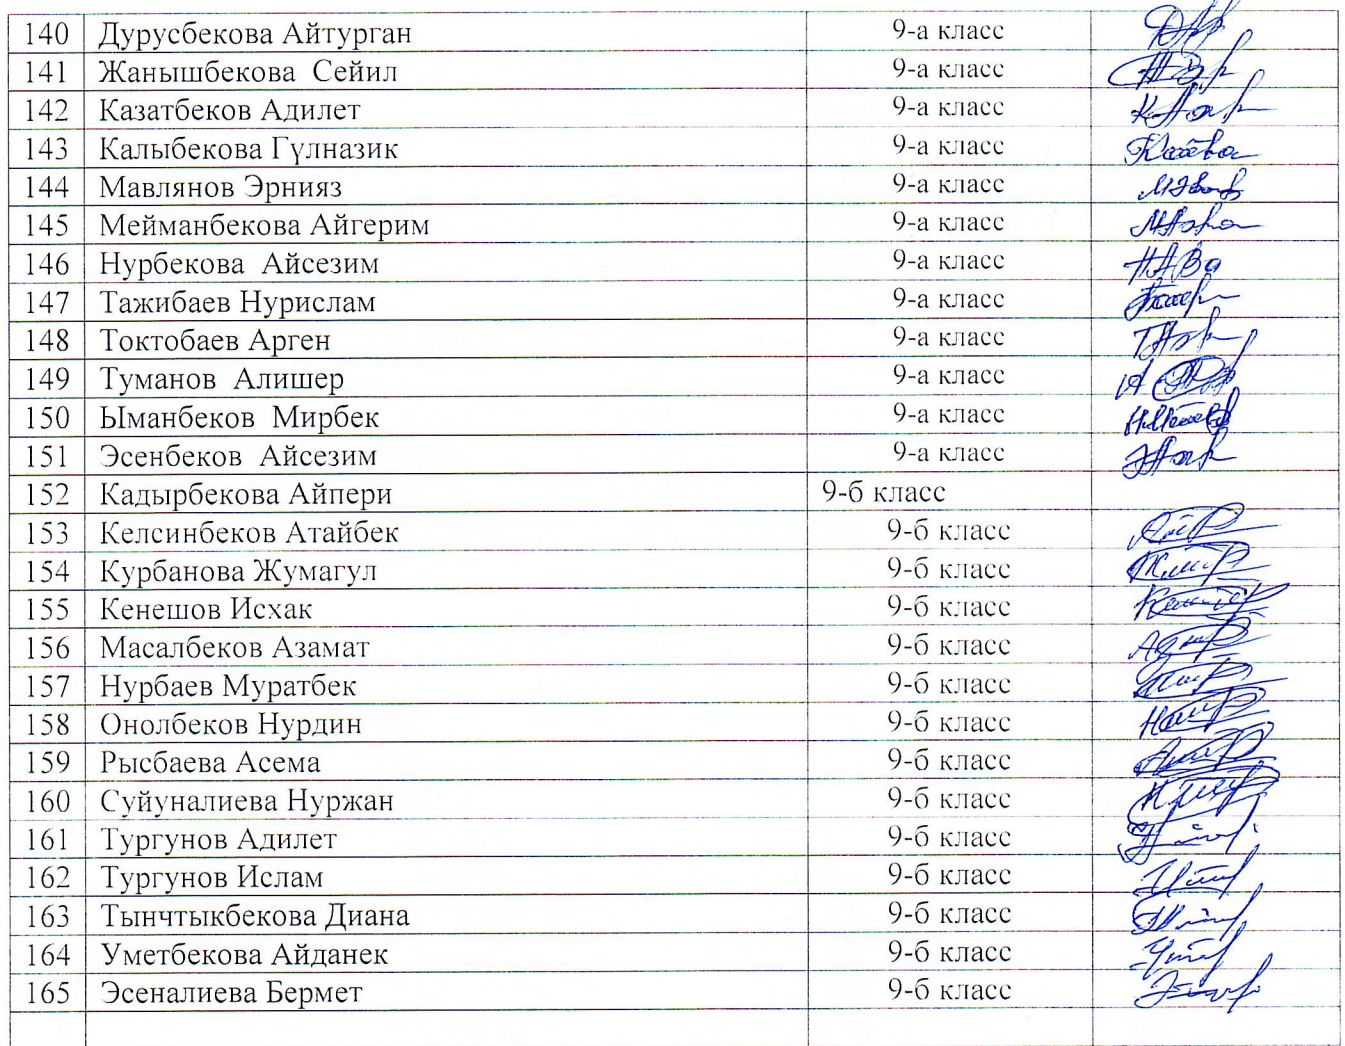 140 Дурусбекова Айтурган 9-а класс
141 Жанышбекова Сейил 9-а класс
142 Казатбеков Адилет 9-а класс
143 Калыбекова Гүлназик 9-а класс
144 Мавлянов Эрнияз 9-а класс
145 Мейманбекова Айгерим 9-а класс
146 Нурбекова Айсезим 9-а класс
147 Тажибаев Нурислам 9-а класс
148 Токтобаев Арген 9-а класс
149 Туманов Алишер 9-а класс
150 Ыманбеков Мирбек 9-а класс
151 Эсенбеков Айсезим 9-а класс
152 Кадырбекова Айпери 9-б класс
153 Келсинбеков Атайбек 9-б класс
154 Курбанова Жумагул 9-б класс
155 Кенешов Исхак 9-б класс
156 Масалбеков Азамат 9-б класс
157 Нурбаев Муратбек 9-б класс
158 Онолбеков Нурдин 9-б класс
159 Рысбаева Асема 9-б класс
160 Суйуналиева Нуржан 9-б класс
161 Тургунов Адилет 9-б класс
162 Тургунов Ислам 9-б класс
163 Тынчтыкбекова Диана 9-б класс
164 Уметбекова Айданек 9-б класс
165 Эсеналиева Бермет 9-б класс